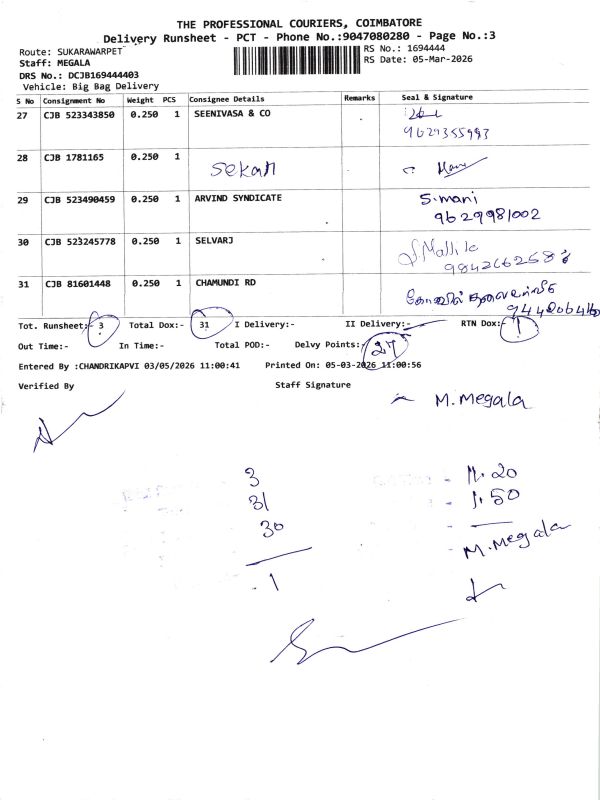 THE PROFESSIONAL COURIERS, COIMBATORE
Delivery Runsheet - PCT - Phone No.:9047080280 - Page No.:3
Route: SUKARAWARPET
RS No.: 1694444
Staff: MEGALA
RS Date: 05-Mar-2026
DRS No.: DCJB169444403
Vehicle: Big Bag Delivery
S No Consignment No Weight PCS Consignee Details Remarks Seal & Signature
27 CJB 523343850 0.250 1 SEENIVASA & CO
9629355993
28 CJB 1781165 0.250 1 Sekan
29 CJB 523490459 0.250 1 ARVIND SYNDICATE S.mani
9629981002
30 CJB 523245778 0.250 1 SELVARJ
31 CJB 81601448 0.250 1 CHAMUNDI RD
Tot. Runsheet:- 3 Total Dox:- 31 I Delivery:- II Delivery:- RTN Dox:- 1
Out Time:- In Time:- Total POD:- Delvy Points:- 27
Entered By :CHANDRIKAPVI 03/05/2026 11:00:41 Printed On: 05-03-2026 11:00:56
Verified By Staff Signature
M. Megala
3 11.20
31 1.50
30
M. Megala
1